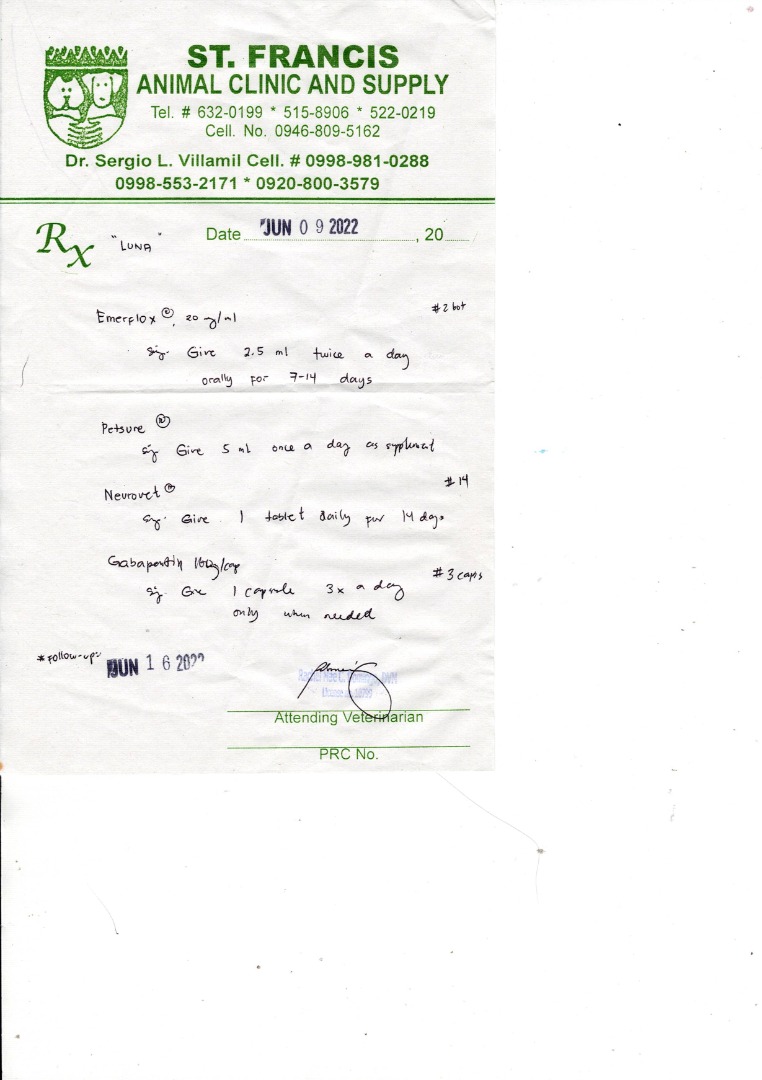 ST. FRANCIS
ANIMAL CLINIC AND SUPPLY
Tel. # 632-0199 * 515-8906 * 522-0219
Cell. No. 0946-809-5162
Dr. Sergio L. Villamil Cell. # 0998-981-0288
0998-553-2171 * 0920-800-3579
Rx "LUNA" Date JUN 09 2022, 20
Emerflox ®, 20 mg/ml #2 bot
Sig. Give 2.5 ml twice a day
orally for 7-14 days
Petsure ®
Sig. Give 5 ml once a day as supplement
Neurovet ® #14
Sig. Give 1 tablet daily for 14 days
Gabapentin 100mg/cap #3 caps
Sig. Give 1 capsule 3x a day
only when needed
*Follow-up: JUN 16 2022
Attending Veterinarian
PRC No.